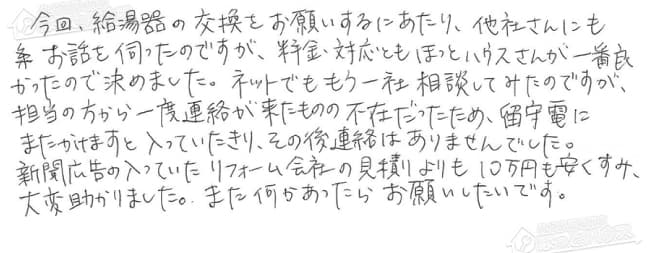 今回、給湯器の交換をお願いするにあたり、他社さんにも
お話を伺ったのですが、料金・対応ともほっとハウスさんが一番良
かったので決めました。ネットでももう一社相談してみたのですが、
担当の方から一度連絡が来たものの不在だったため、留守電に
またかけますと入っていたきり、その後連絡はありませんでした。
新聞広告の入っていたリフォーム会社の見積りよりも10万円も安くすみ、
大変助かりました。また何かあったらお願いしたいです。